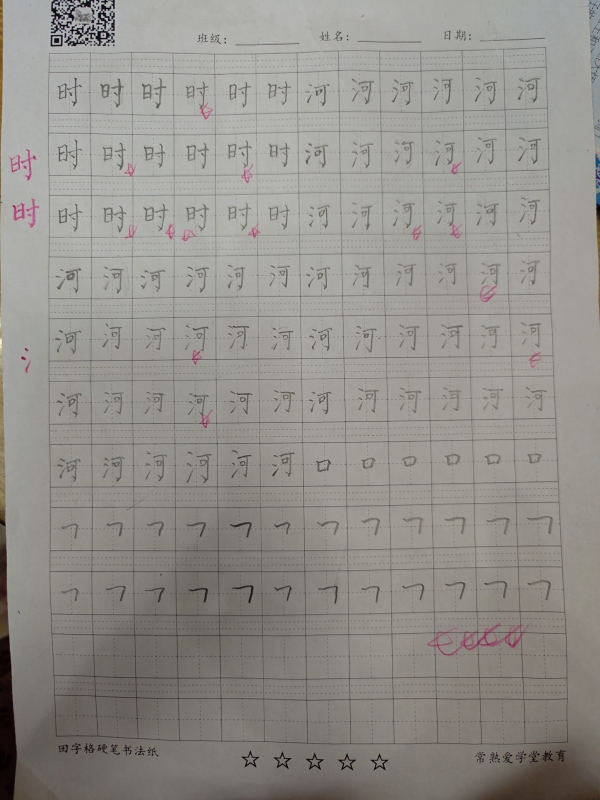 班级： 姓名： 日期：
时 时 时 时 时 时 河 河 河 河 河 河
时 时 时 时 时 时 时 河 河 河 河 河 河
时 时 时 时 时 时 时 河 河 河 河 河 河
河 河 河 河 河 河 河 河 河 河 河 河
氵 河 河 河 河 河 河 河 河 河 河 河 河
河 河 河 河 河 河 河 河 河 河 河 河
河 河 河 河 河 河 口 口 口 口 口 口
㇕ ㇕ ㇕ ㇕ ㇕ ㇕ ㇕ ㇕ ㇕ ㇕ ㇕ ㇕
㇕ ㇕ ㇕ ㇕ ㇕ ㇕ ㇕ ㇕ ㇕ ㇕ ㇕ ㇕
田字格硬笔书法纸 ☆ ☆ ☆ ☆ ☆ 常熟爱学堂教育